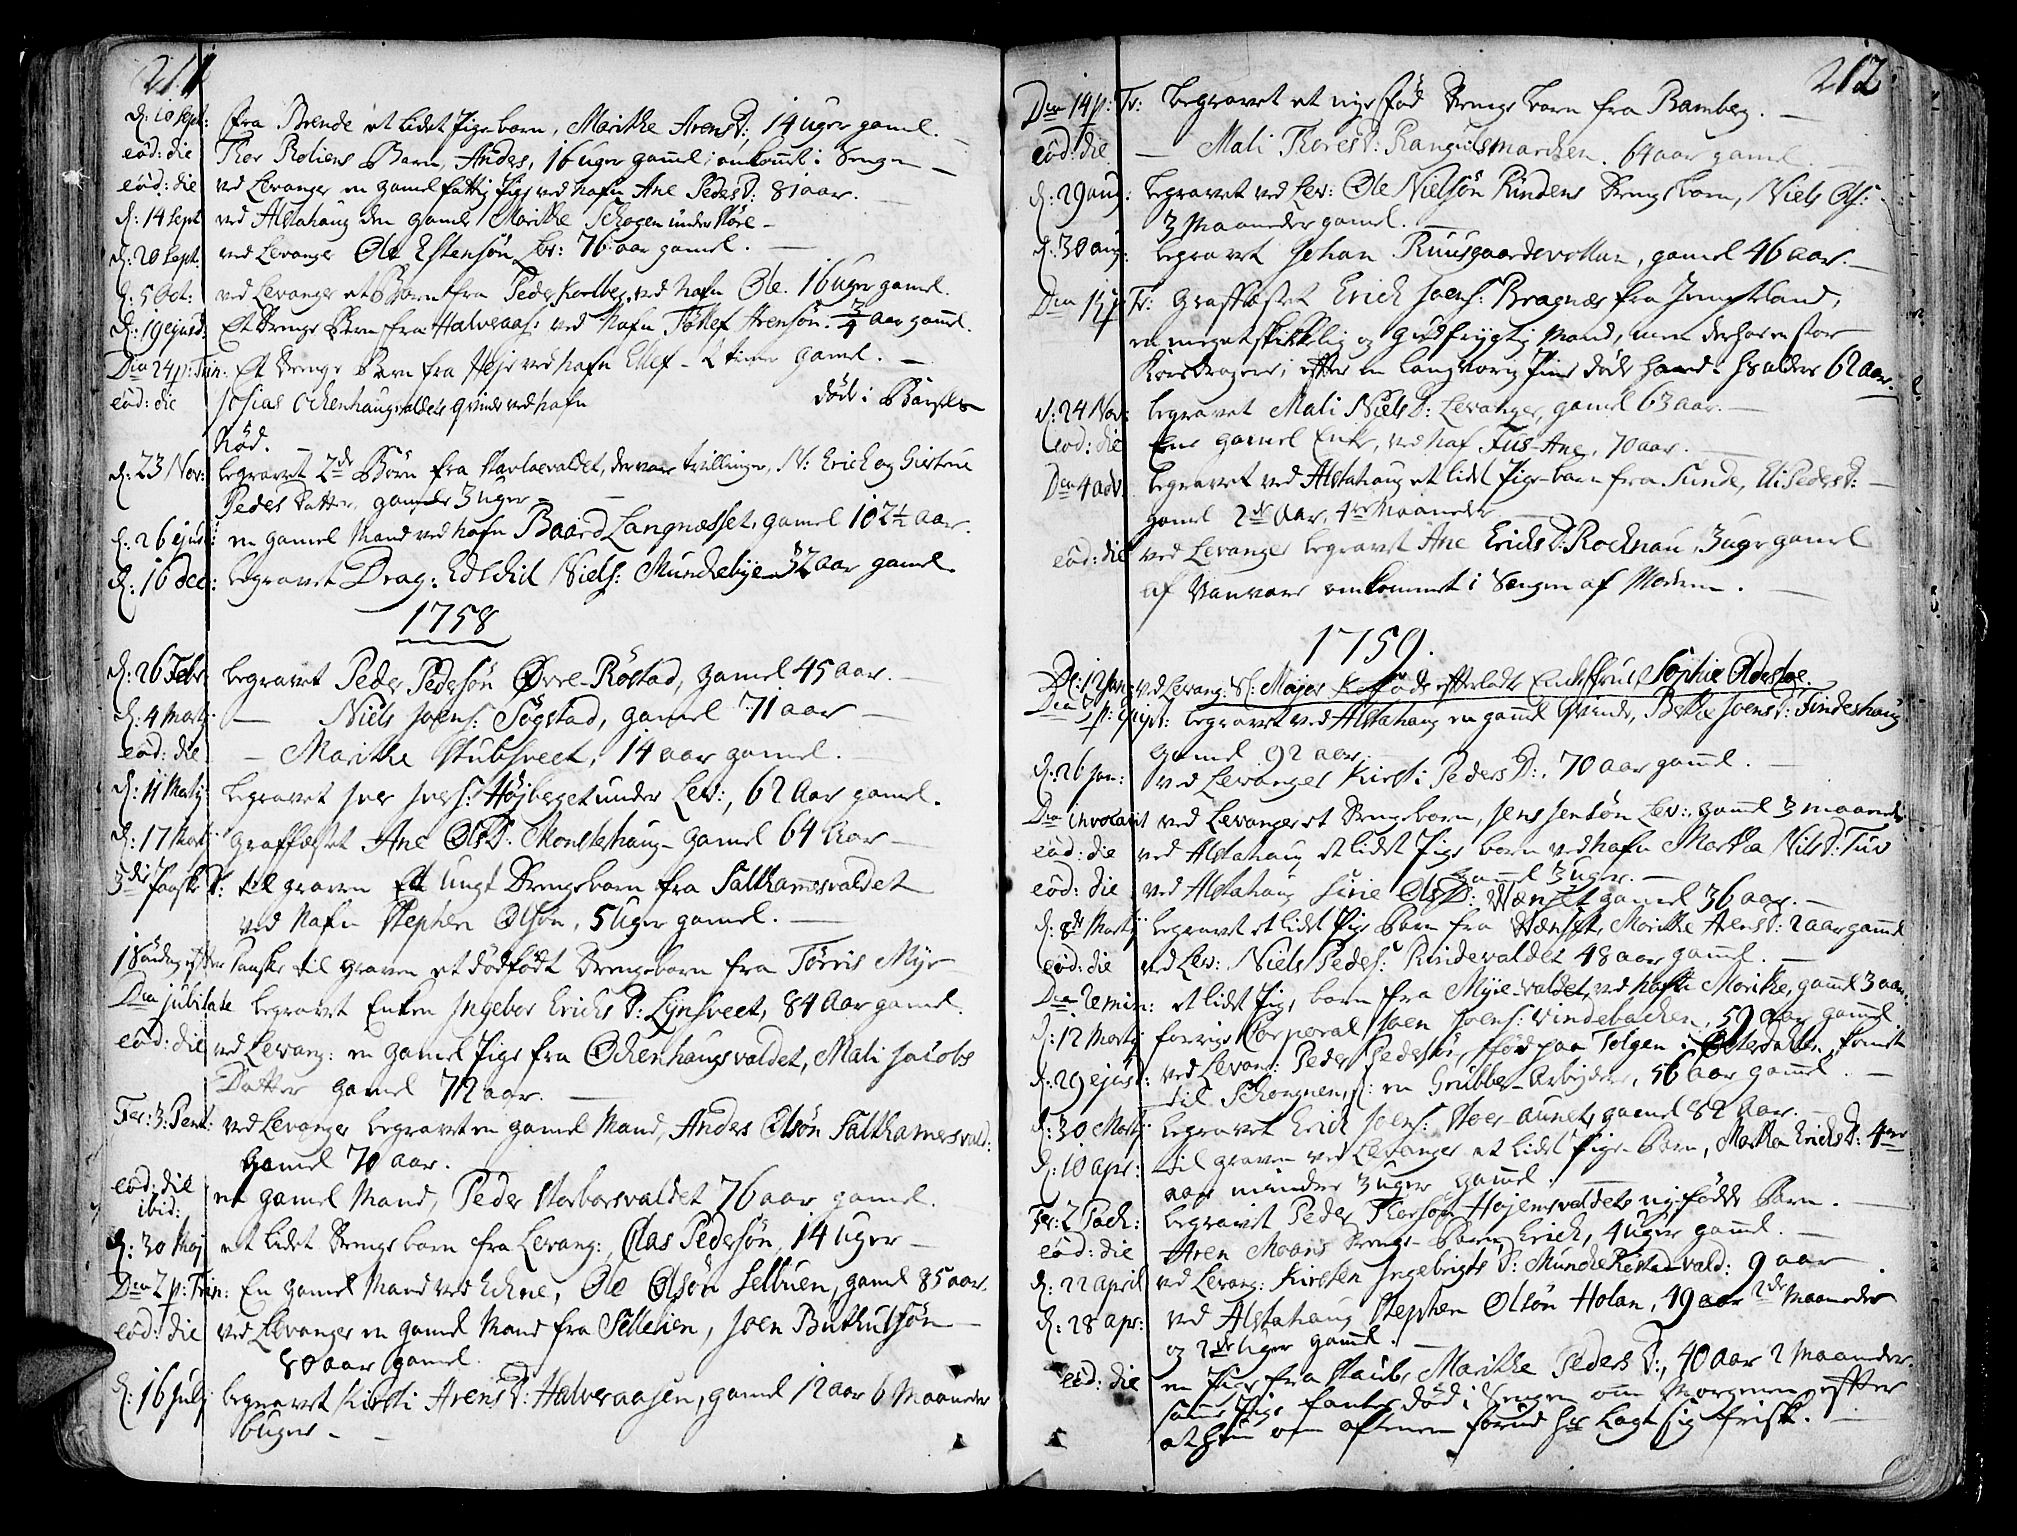 211
d: 10 Sept: fra Brende et lidet Pigebarn, Marithe Arens D: 14 Uger gamel.
eod: die Thor Roliens Barn, Anders, 16 Uger gamel; omkommet i Sengen
eod: die ved Levanger en gamel fattig Pige ved Nafn Ane Peders D: 81 aar.
d: 14 Sept ved Alstahaug den gamle Marithe Schogen under Höle
d: 20 Sept: ved Levanger Ole Estensön Lev: 76 aar gamel.
d: 5 Oct: ved Levanger et Barn fra Peder Kolberg, ved Nafn Ole. 16 Uger gamel.
d: 19 ejusd: Et Drenge Barn fra Halveraas: ved Nafn Töllef Arensön. 3/4 aar gamel.
Dca 24 p: Trin: Et Drenge Barn fra Heje ved Nafn Ellef - 2 timer gamel.
eod: die Josias Ochenhaugvaldets Qvinde ved Nafn döde i Barsels
Nöd.
d: 23 Nov: begravet 2de Börn fra valdet, der vare tvillinger, N: Erich og Girstene
Peders Datter, gamle 3 Uger
d: 26 ejusd: en gamel Mand ved Nafn Baard Langnæsset, gamel 102 1/2 aar.
d: 16 Dec: begravet Drag: Edschil Niels: Munchebye 32 aar gamel.
1758
d: 26 Febr: begravet Peder Pedersön Övre-Röstad, gamel 45 aar.
d: 4 Marti: — Niels Joens: Togstad, gamel 71 aar
eod: die — Marithe Stubsveet, 14 aar gamel.
d: 11 Martj begravet Iver Ivers: Höjberget under Lev:, 62 Aar gamel.
d: 17 Martj graffæstet Ane Ols D: Monstehaug gamel 64 Aar
3die Paaske D: til graven et ungt Drengebarn fra Salthamersvaldet
ved Nafn Stephen Olsön, 5 Uger gamel.
1 Söndag efter Paaske til graven et dödfödt Drengebarn fra Törris Myr
Dca jubilate begravet Enken Ingebor Erichs D: Lynsveet, 84 Aar gamel.
eod: die ved Levang: en gamel Pige fra Ochenhaugsvaldet, Mali Jacobs
Datter gamel 72 aar.
Fer: 3: Pent: ved Levanger begravet en gamel Mand, Anders Olsön Salthamersvald:
gamel 70 aar.
eod: die ibid: en gamel Mand, Peder Norborsvaldet 76 aar gamel.
d: 30 Maj et lidet Drengebarn fra Levang:, Clas Pedersön, 14 Uger
Dca 2 p: Trin: En gamel Mand ved Echne, Ole Olsön Selbuen, gamel 85 aar.
eod: die ved Levanger en gamel Mand fra Sellelien, Joen Buthulsön
80 aar gamel.
d: 16 Julj begravet Kirsti Arens D: Halveraasen, gamel 12 aar 6 Maaneder
6 Uger
212
Dca 14 p: Tr: begravet et nyefød Drenge Barn fra Ramberg.
eod: die — Mali Thores D: Rangulsmarchen. 64 aar gamel.
d: 29 aug: begravet ved Lev: Ole Nielsön Rindens Drengebarn, Niels Ols:
3 Maaneder gamel.
d: 30 aug: begravet Johan Ruusgaardsvollan, gamel 46 aar.
Dca 15 p: Tr: Graffæstet Erich Joens: Bragnæs fra Jempterland,
en meget skikkelig og gudfrygtig Mand, men derhos en stor
Korsdragere; efter en langvarig Pine döde hand i hs alders 62 aar.
d: 24 Nov: begravet Mali Niels D: Levanger, gamel 63 aar.
eod: die Een gamel Enke, ved Naf Tus-Ane, 70 aar.
Dca 4 adv: begravet ved Alstahaug et lidet Pige-barn fra Sunde, Eli Peders D:
gamel 2de Aar, 4re Maaneder
eod: die ved Levanger begravet Ane Erichs D: Rochnau, 3 uger gamel
af Vanvare omkommet i Sengen af Moderen.
1759.
D: 12 Jan: ved Levang: Sl: Major efterladte Enkefrue Sophie
Dca p: Epiph: begravet ved Alstahaug en gamel Qvinde, Berthe Joens D: Findeshaug
gamel 92 aar.
d: 26 Jan: ved Levanger Kirsti Peders D:, 70 aar gamel.
Dca invocavit ved Levanger et Drengebarn, Jens Jensön Lev: gamel 3 maaneder
eod: die ved Alstahaug et lidet Pige barn ved Nafn Martha Nils D: Tuv
gamel 3 Uger.
eod: die ved Alstahaug Sirie Ols D: Wænset gamel 36 aar.
d: 8de Martj begravet et lidet Pige Barn fra Wænset, Marithe Arens D: 2 aar gamel
eod: die ved Lev: Niels Peders: Rindevaldet 48 aar gamel.
Dca Remin: et lidet Pige barn fra Myre-valdet, ved Nafn Marithe, gamel 3 aar.
d: 12 Martj forrige Corporal Joen Joens: Vindebachen, 59 aar gamel
d: 29 ejusd: ved Levang: Peder Pedersön, föd paa Tolgen i Österdalen, komen
til Schognen, : en Grubbe-Arbejder, 56 aar gamel.
d: 30 Martj begravet Erich Joens: Hoer-aunet, gamel 82 Aar.
d: 10 apr: til graven ved Levanger et lidet Pige-Barn, Martha Erichs D: 4re
aar mindre 3 uger gamel.
Fer: 2 Pasch: begravet Peder Thorsön Højemsvaldets nyfödde Barn.
eod: die Aren Moans Drenge-Barn Erich, 4 Uger gamel.
d: 22 april ved Levang: Kirsten Ingebrigts D: MuncheRöstadvald: 9 aar
d: 28 apr: ved Alstahaug Stephen Olsön Holan, 49 aar 2de Maaneder
og 2de Uger gamel.
eod: die en Pige fra Staub, Marithe Peders D:, 40 aar 2 Maaneder.
samme Pige fantes död i Sengen om Morgenen, efter
at hun om aftenen forud hr lagt sig frisk.